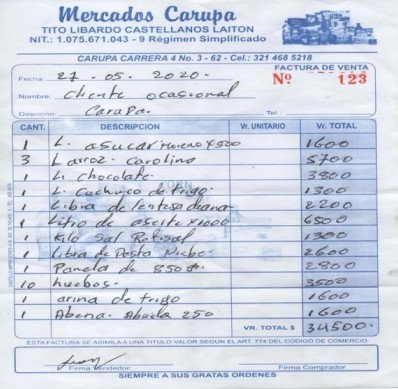 Mercados Carupa
TITO LIBARDO CASTELLANOS LAITON
NIT.: 1.075.671.043 - 9 Régimen Simplificado
CARUPA CARRERA 4 No. 3 - 62 - Cel.: 321 468 5218
FACTURA DE VENTA
Fecha: 27-05-2020.
Nº 123
Nombre: Cliente ocasional
Dirección: Carupa. Tel.:
CANT. DESCRIPCION Vr. UNITARIO Vr. TOTAL
1 L. asucar moreno x500 1600
3 L arroz carolino 5700
1 L chocolate 3800
1 L Cuchuco de trigo 1300
1 Libra de lentesa diana 2200
1 Litro de aseite x1000 6500
1 Kilo Sal Refisal 1300
1 Libra de Pasta 2600
1 Panela de 850 gr. 2800
10 huebos 3500
1 arina de trigo 1600
1 Abena Abuela 250 1600
VR. TOTAL $ 34500
ESTA FACTURA SE ASIMILA A UN TITULO VALOR SEGUN EL ART. 774 DEL CODIGO DE COMERCIO
Firma Vendedor Firma Comprador
SIEMPRE A SUS GRATAS ORDENES